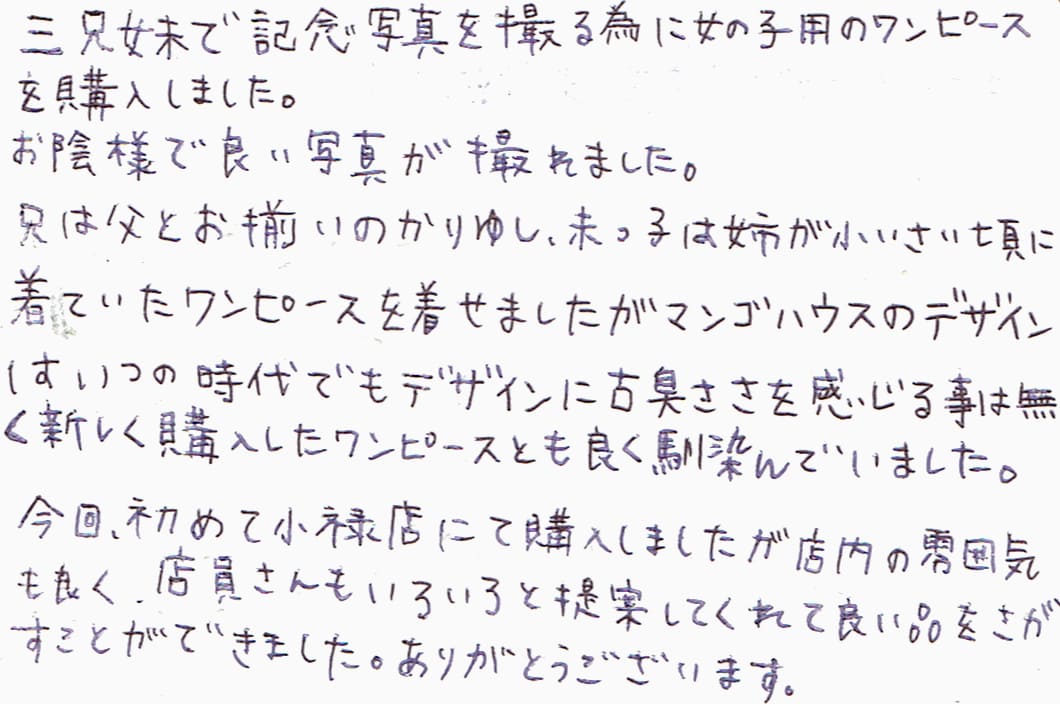 三兄妹で記念写真を撮る為に女の子用のワンピース
を購入しました。
お陰様で良い写真が撮れました。
兄は父とお揃いのかりゆし、末っ子は姉が小いさい頃に
着ていたワンピースを着せましたがマンゴハウスのデザイン
はいつの時代でもデザインに古臭ささを感じる事は無
く新しく購入したワンピースとも良く馴染んでいました。
今回、初めて小禄店にて購入しましたが店内の雰囲気
も良く、店員さんもいろいろと提案してくれて良い品をさが
すことができました。ありがとうございます。